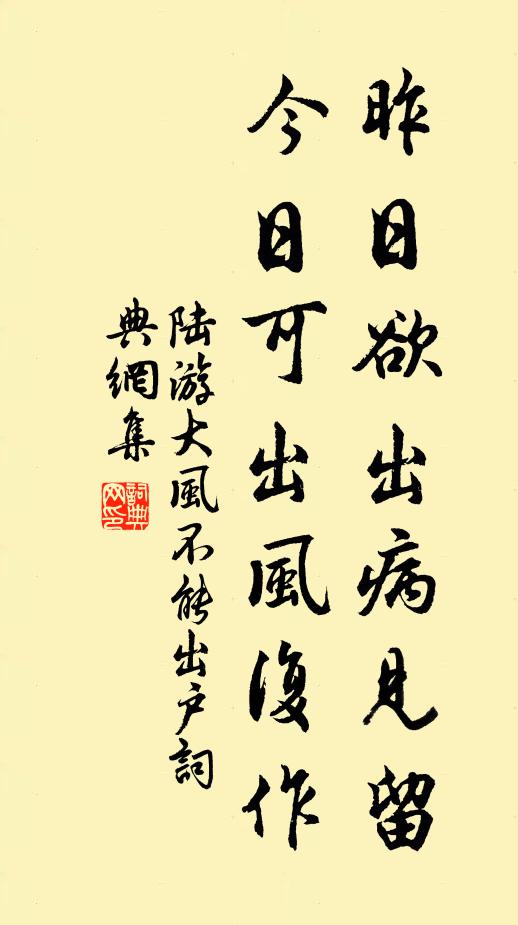 昨日欲出病見留
今日可出風復作
陆游大風不能出户詞
典網集
詞典
网印